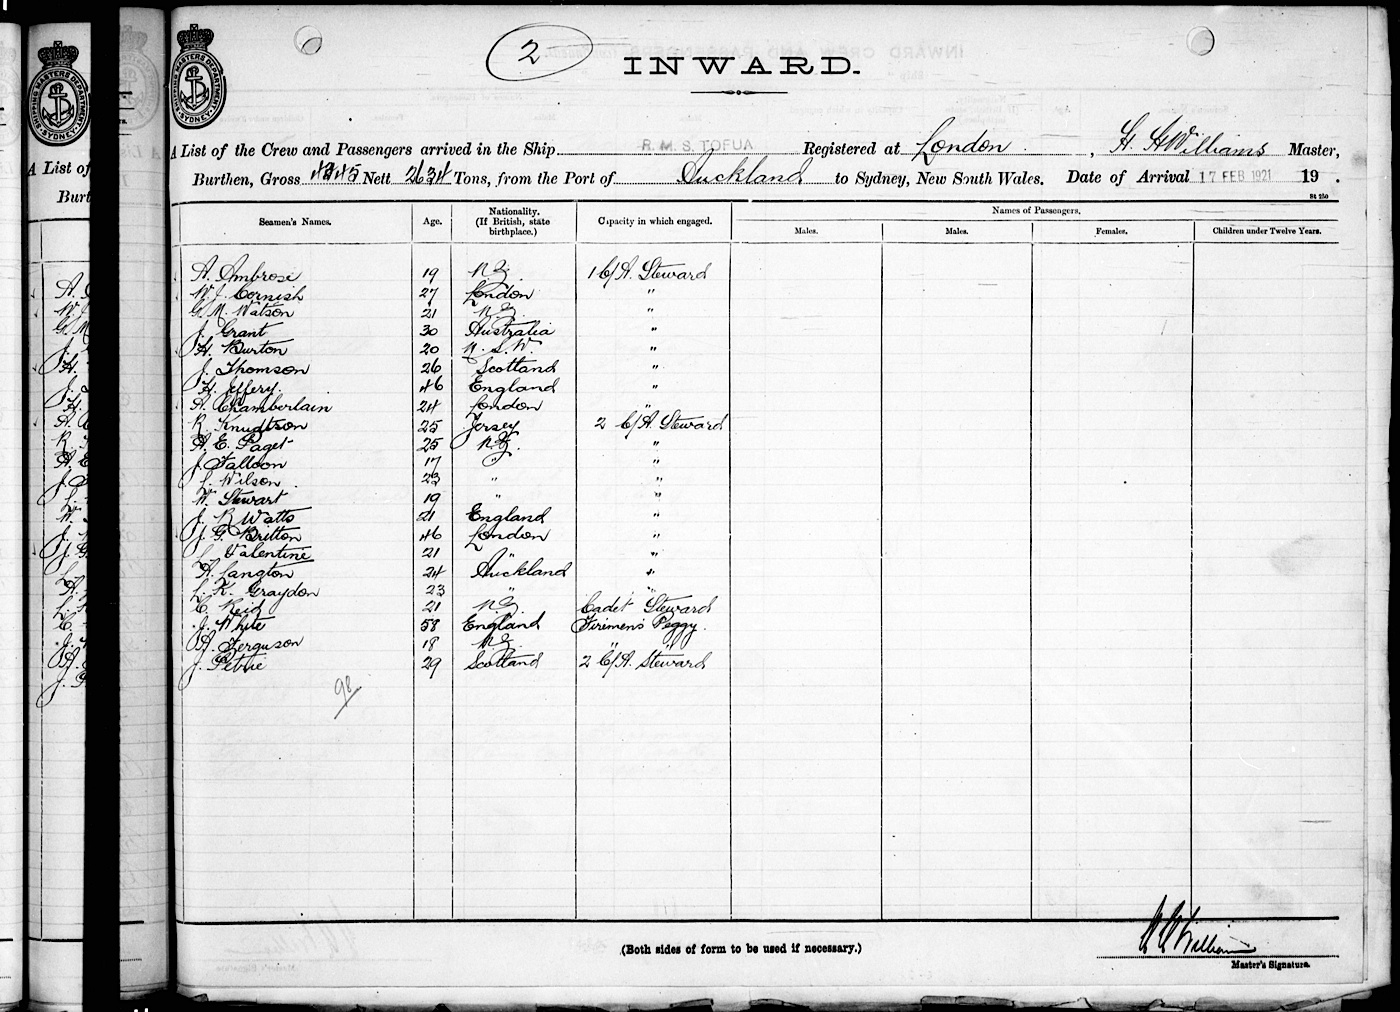 2
INWARD.
SHIPPING MASTERS DEPARTMENT SYDNEY
A List of the Crew and Passengers arrived in the Ship R. M. S. TOFUA Registered at London , H. H Williams Master,
Burthen, Gross Nett 2634 Tons, from the Port of Auckland to Sydney, New South Wales. Date of Arrival 17 FEB 1921 19 .
St 250
Seamen's Names. Age. Nationality. (If British, state birthplace.) Capacity in which engaged. Names of Passengers.
Males. Males. Females. Children under Twelve Years.
A. Ambrose 19 N.Z. 1 C/A. Steward
W. J. Cornish 27 London "
G. M. Watson 21 N.Z. "
J. Grant 30 Australia "
H. Burton 20 N. S. W. "
J. Thomson 26 Scotland "
H. Effery. 46 England "
A. Chamberlain 24 London "
R. Knudtson 25 Jersey 2 C/A. Steward
A. E. Paget 25 N.Z. "
J. Falloon 17 " "
L. Wilson 23 " "
W. Stewart 19 " "
J. R. Watts 21 England "
J. G. Britton 46 London "
L. Valentine 21 " "
A. Langton 24 Auckland "
L. K. Graydon 23 " "
C. Reid 21 N.Z. Cadet Steward
J. White 58 England Firemens Peggy.
A. Ferguson 18 N.Z. "
J. Petrie 29 Scotland 2 C/A. Steward
98
(Both sides of form to be used if necessary.)
H H Williams
Master's Signature.